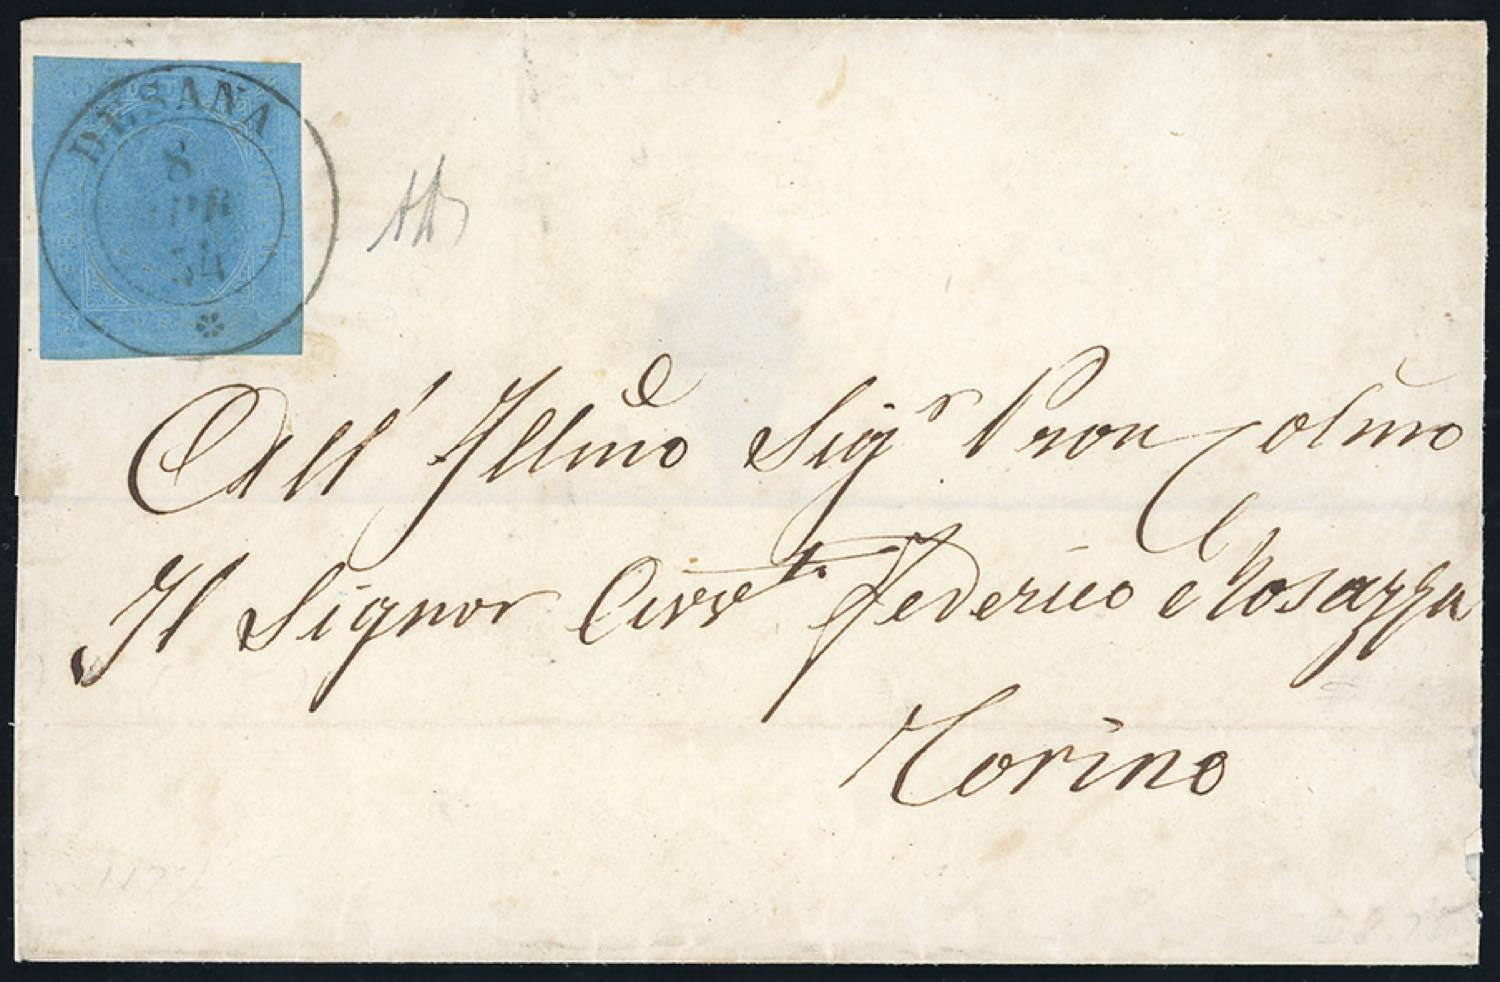 DESANA
8
APR
54
All' Illmo Sigr Pron Colmo
Il Signor Avvto Federico Rosazza
Torino